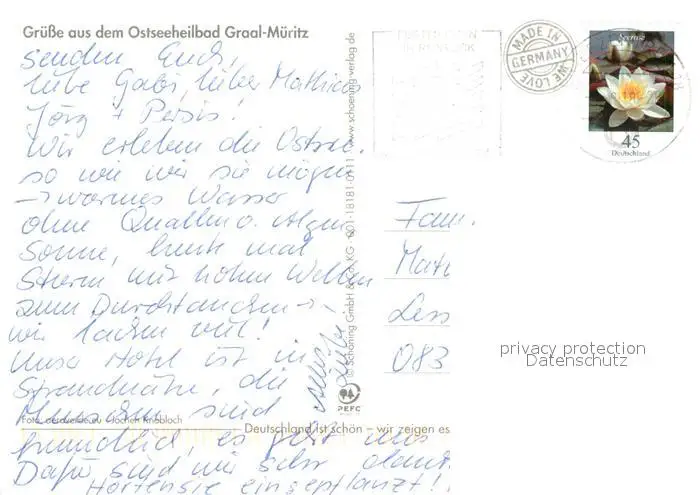 Grüße aus dem Ostseeheilbad Graal-Müritz
senden Euch,
liebe Gabi, lieber Mathias
Jörg + Persis!
Wir erleben die Ostsee
so wie wir sie mögen
→ warmes Wasser
ohne Quallen o. Algen
Sonne, heute mal
Sturm mit hohen Wellen
zum Durchtauchen →
wir lachen viel!
Unser Hotel ist in
Strandnähe, die
Menschen sind
freundlich, es geht uns
Dafür sind wir sehr
Hortensie eingepflanzt!
Foto: Jochen Knobloch
Deutschland ist schön – wir zeigen es
© Schöning GmbH & Co. KG
www.schoening-verlag.de
PEFC
MADE IN
GERMANY
WE LOVE
Seerose
45
Deutschland
Fam.
Math
Less
083
privacy protection
Datenschutz